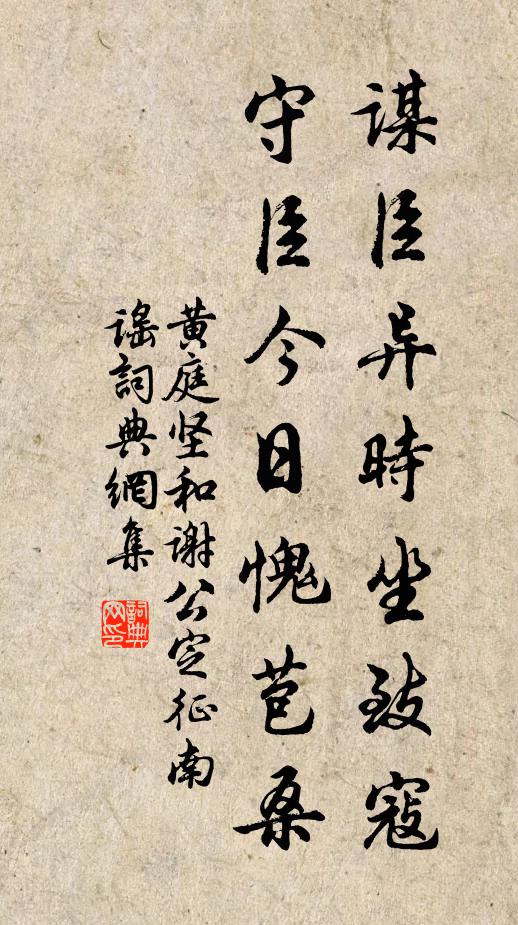 谋臣异時坐致寇
守臣今日愧苞桑
黄庭坚和谢公定征南
谣詞典網集
詞典网印